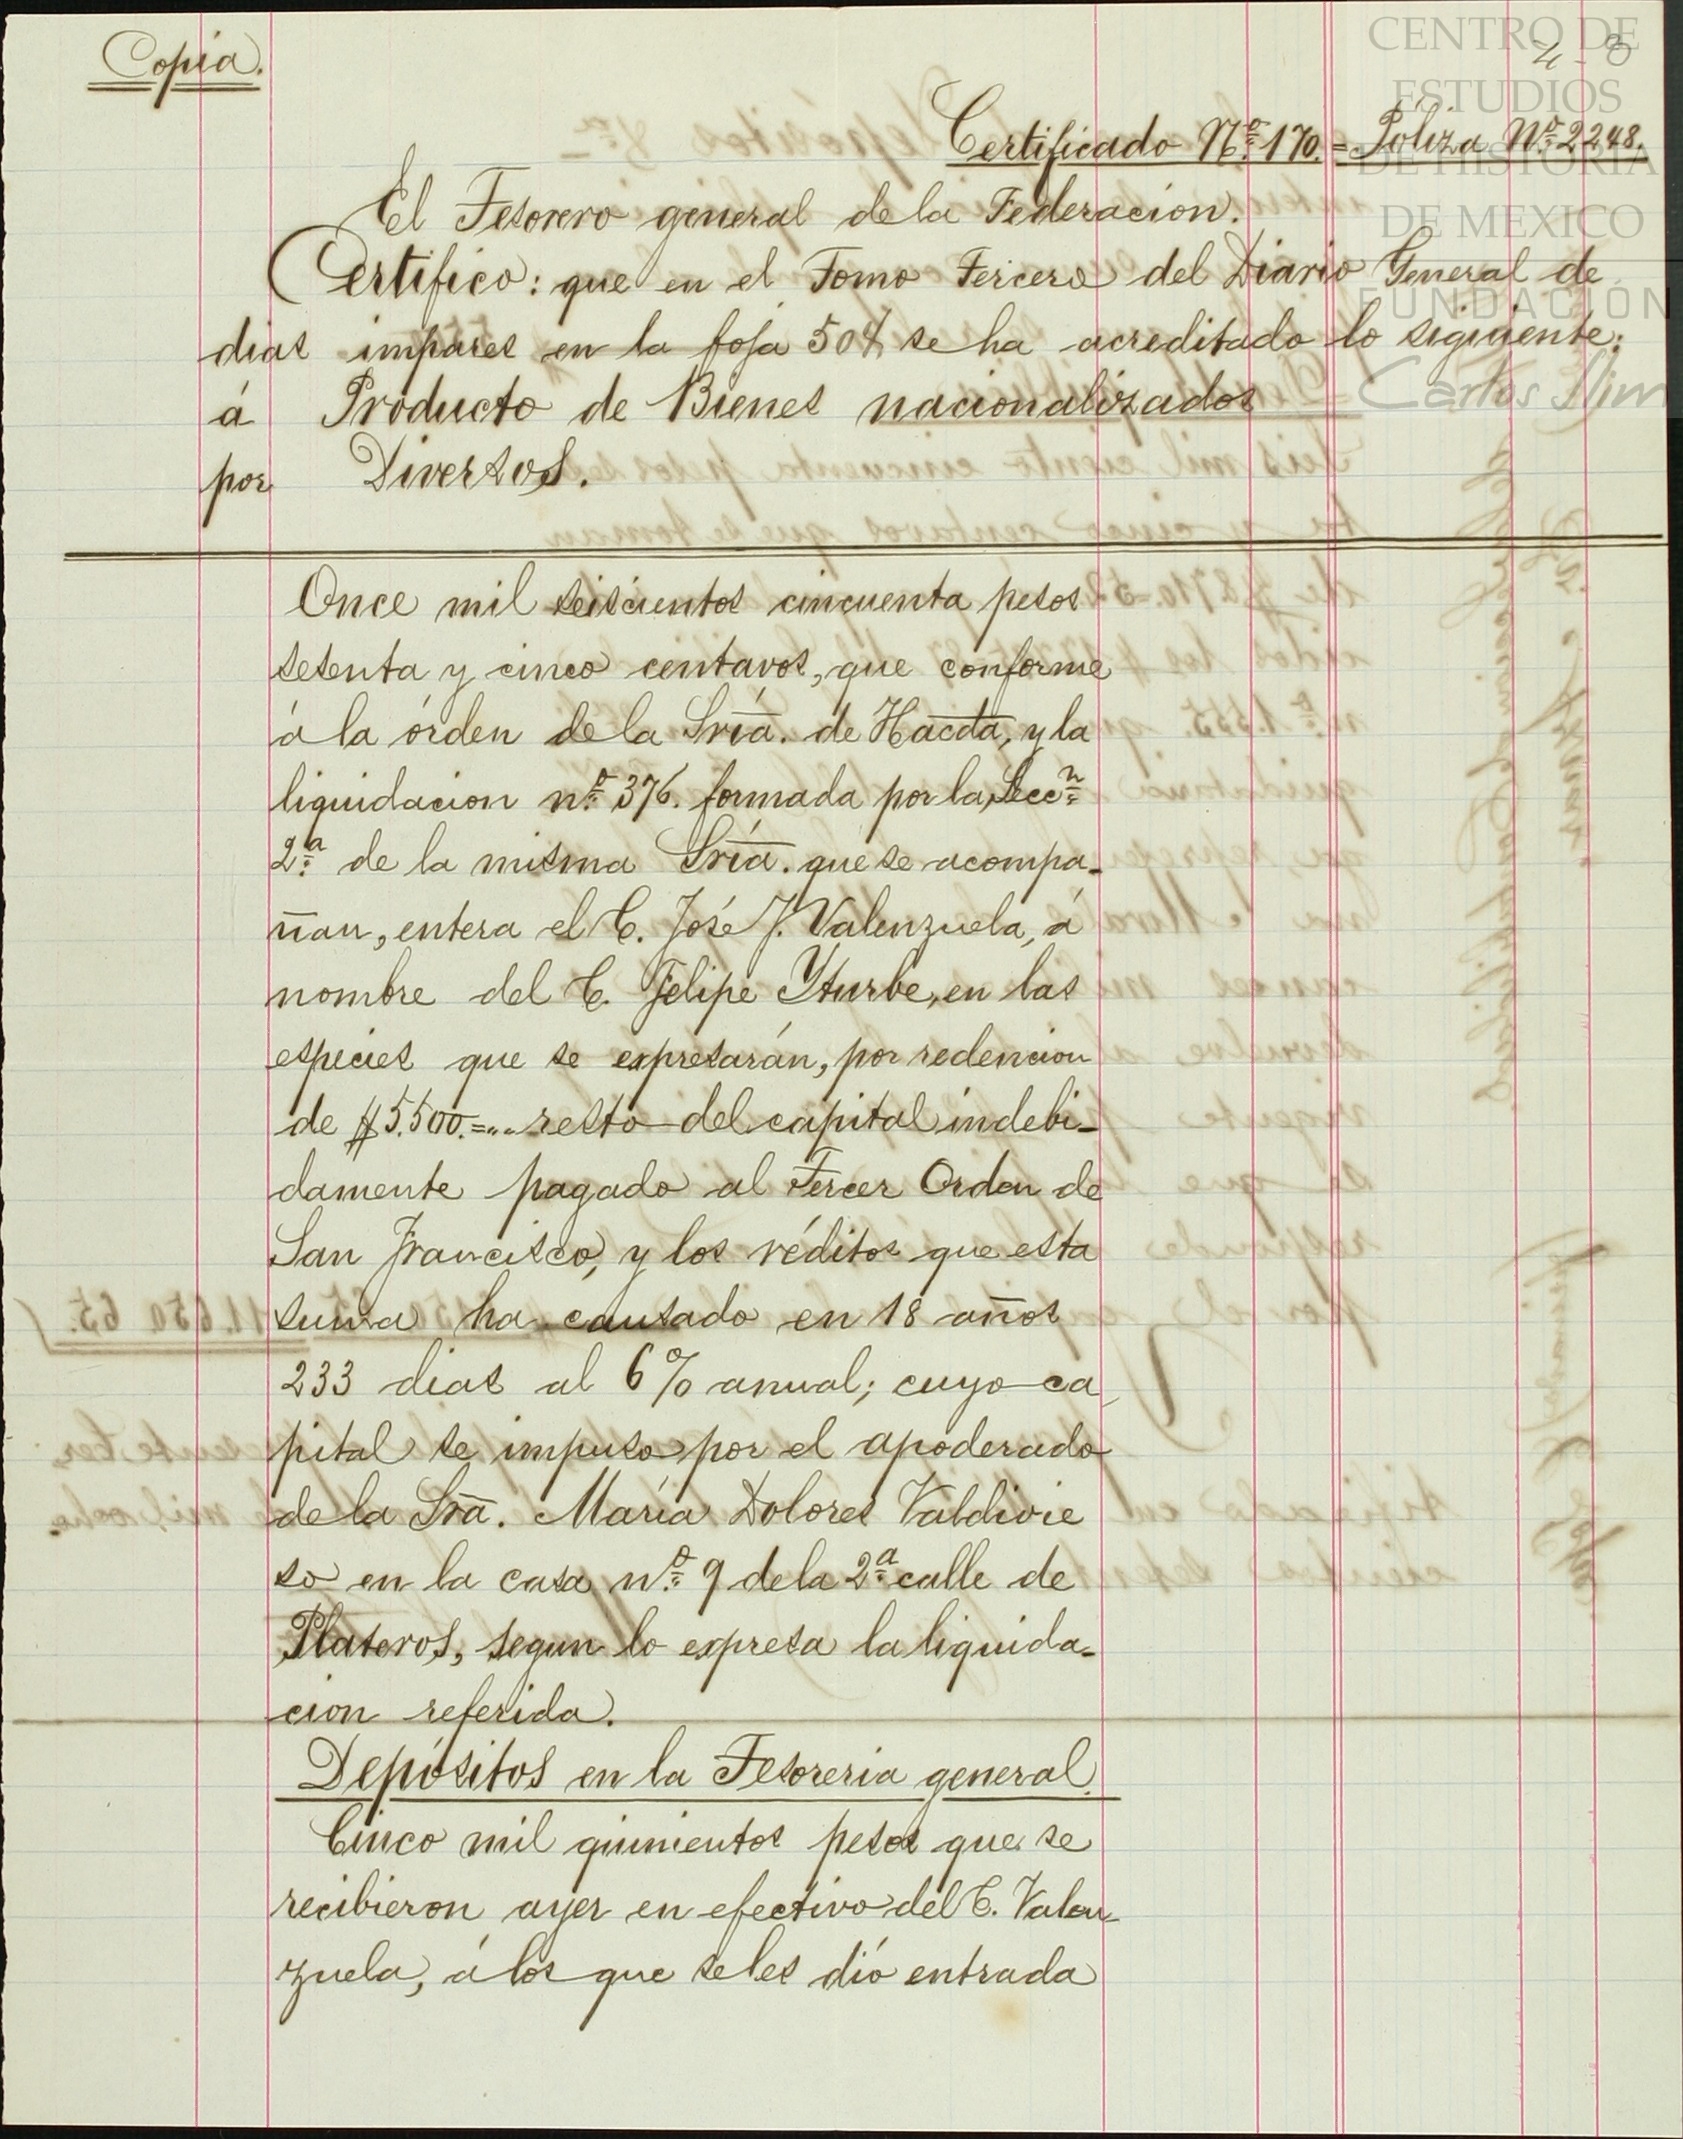 Copia.
4-8
Certificado Nº 170. = Póliza Nº 2248.
El Tesorero general de la Federacion.
Certifico: que en el Tomo Tercero del Diario General de
dias impares en la foja 504 se ha acreditado lo siguiente:
á Producto de Bienes nacionalizados
por Diversos.
Once mil seiscientos cincuenta pesos
sesenta y cinco centavos, que conforme
á la órden de la Sría. de Hacda, y la
liquidacion nº 376. formada por la Seccn
2ª de la misma Sría. que se acompa-
ñan, entera el C. José J. Valenzuela, á
nombre del C. Felipe Yturbe, en las
especies que se expresarán, por redencion
de $5.500.=.. resto del capital indebi-
damente pagado al Tercer Orden de
San Francisco, y los réditos que esta
suma ha causado en 18 años
233 dias al 6% anual; cuyo ca
pital se impuso por el apoderado
de la Sra. María Dolores Valdivie
so en la casa nº 9 de la 2ª calle de
Plateros, segun lo expresa la liquida-
cion referida.
Depósitos en la Tesoreria general.
Cinco mil quinientos pesos que se
recibieron ayer en efectivo del C. Valen-
zuela, á los que se les dió entrada
CENTRO DE
ESTUDIOS
DE HISTORIA
DE MEXICO
FUNDACIÓN
Carlos Slim